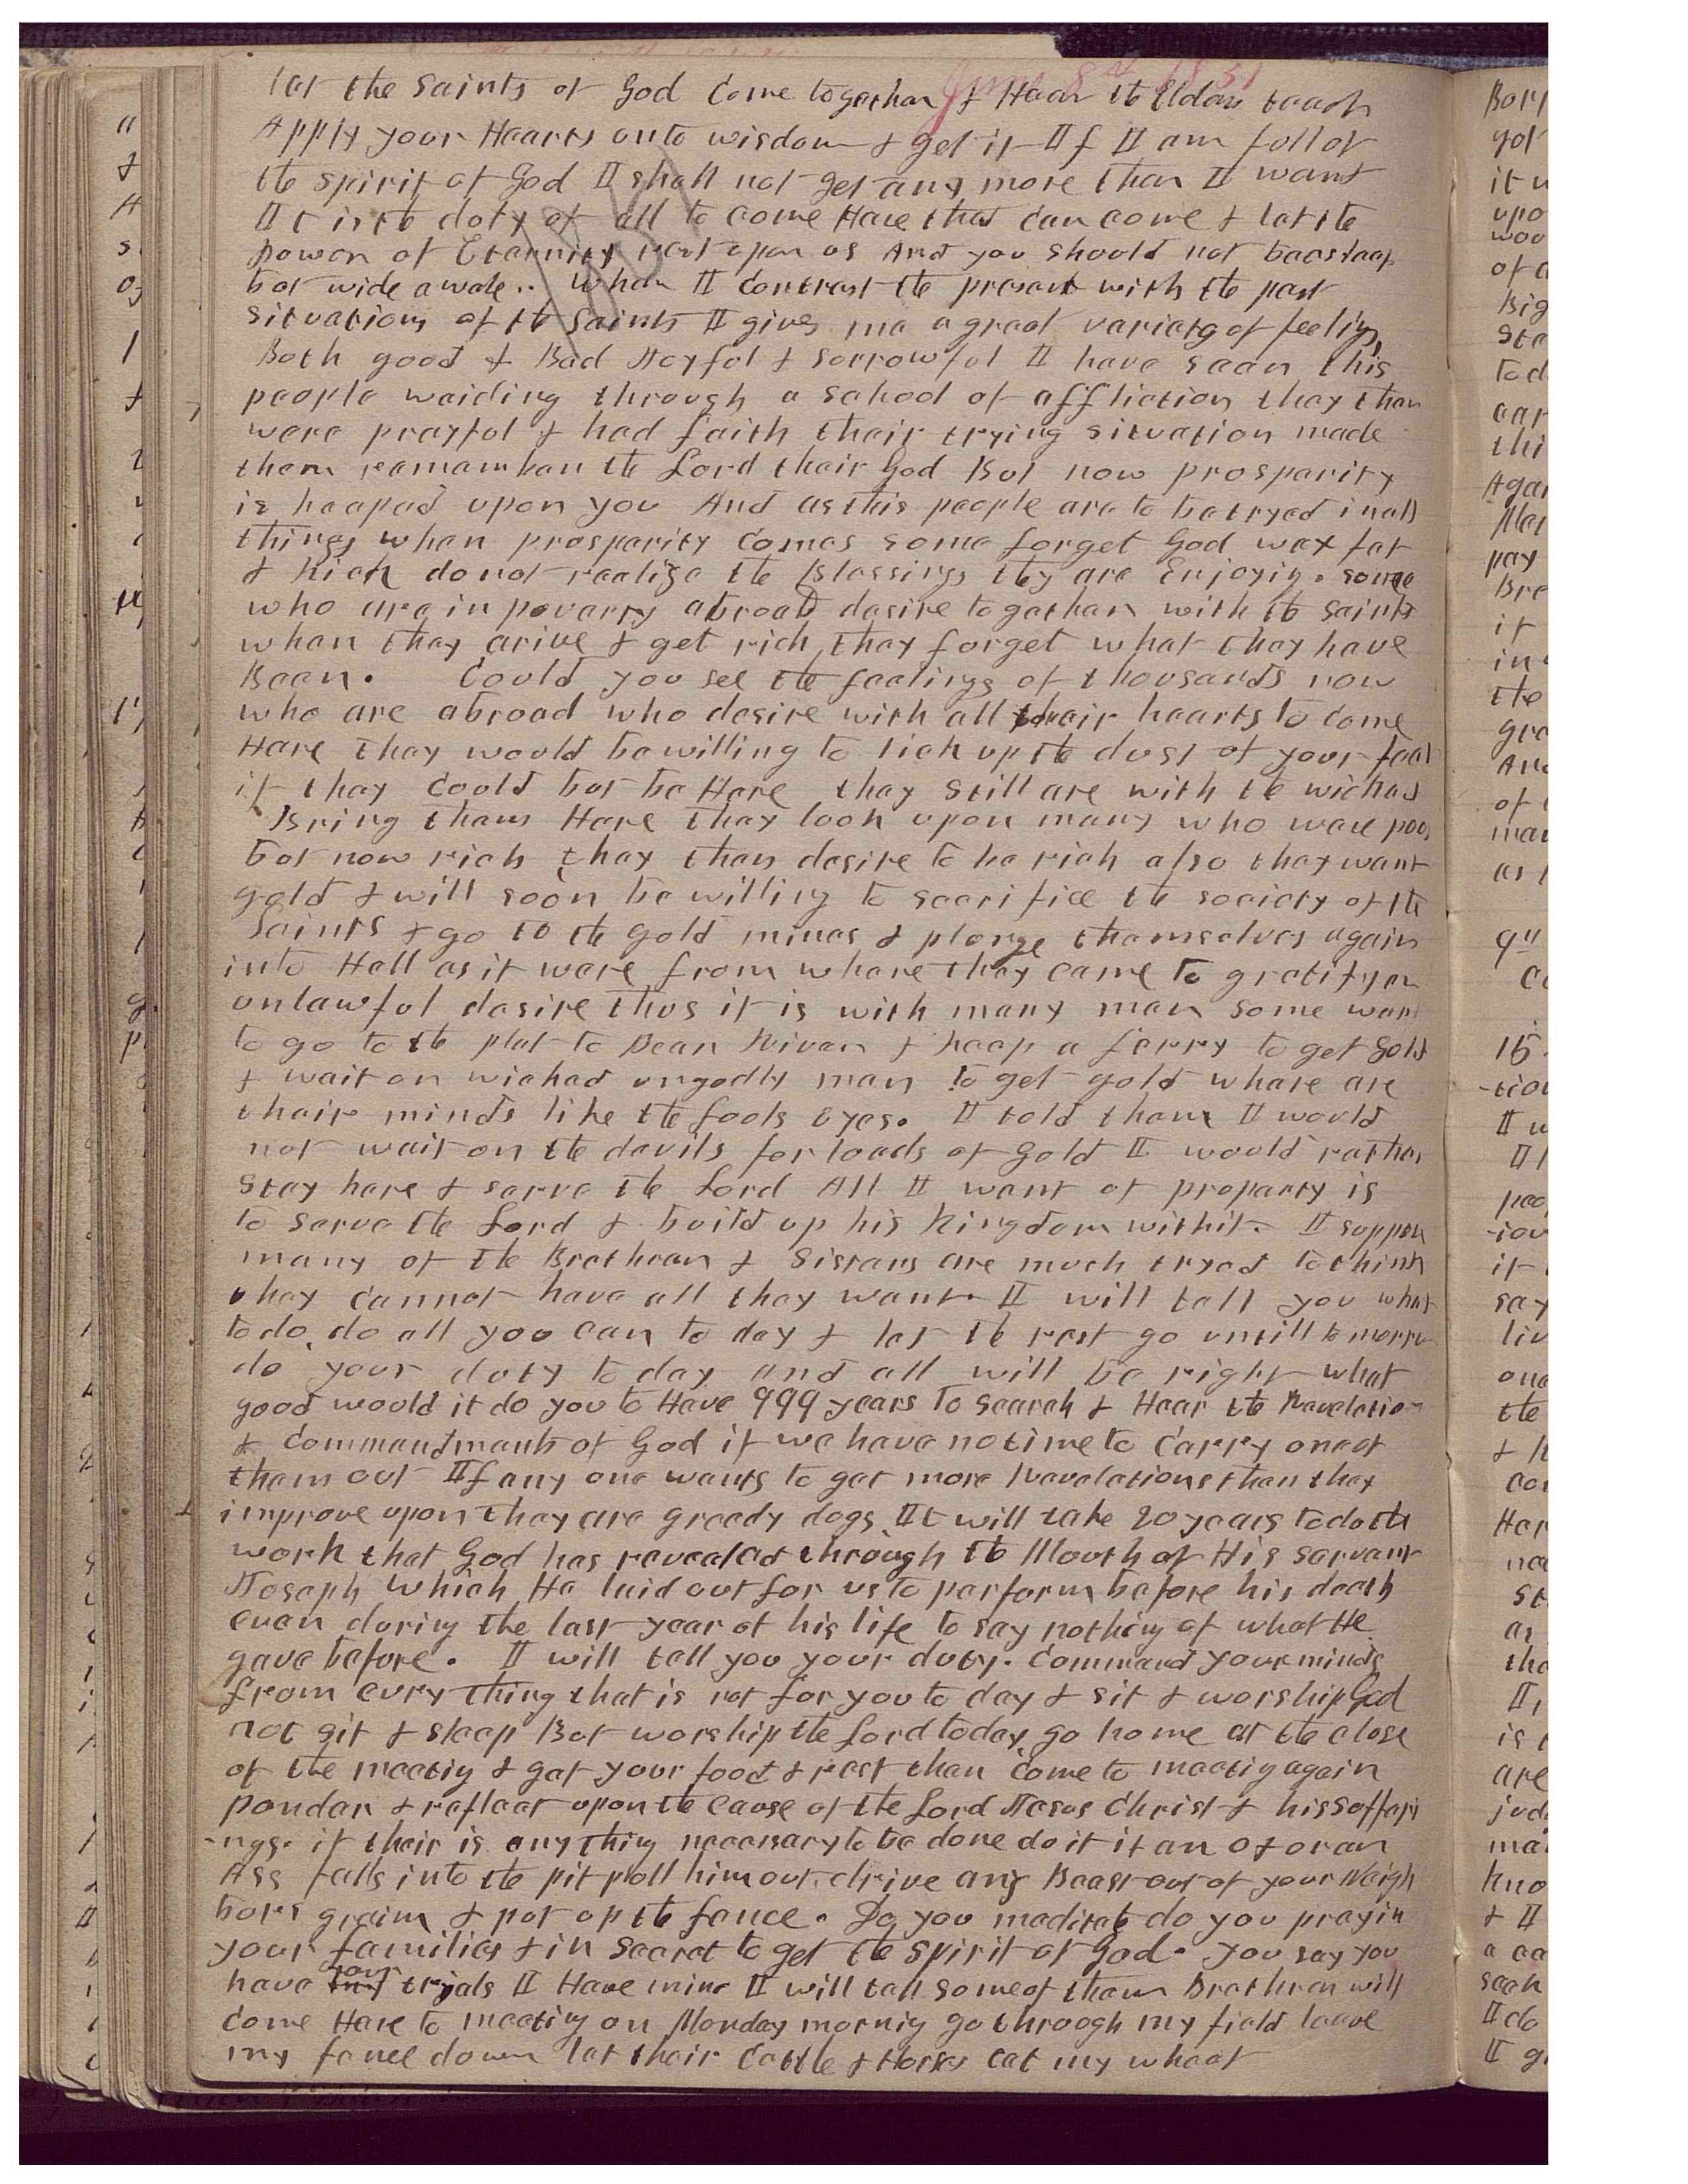 June 8th 1851
let the Saints of God Come together & Hear the Elders teach
Apply your Hearts unto wisdom & get it If I am full of
the spirit of God I shall not get any more than I want
It is the duty of all to come Here that can come & let the
power of Eternity rest upon us And you should not be asleep
but wide awake.. When I Contrast the present with the past
situations of the Saints I gives me a great variety of feelings
Both good & Bad Joyful & sorrowful I have seen this
people waiding through a school of affliction they then
were prayful & had faith their trying situation made
them remember the Lord their God But now prosperity
is heaped upon you And as this people are to be tryed in all
things when prosperity Comes some forget God wax fat
& kick do not realize the Blessings they are Enjoying. some
who are in poverty abroad desire to gather with the saints
when they arive & get rich they forget what they have
Been. Could you see the feelings of thousands now
who are abroad who desire with all their hearts to Come
Here they would be willing to lick up the dust of your feet
if they Could but be Here they still are with the wicked
Bring them Here they look upon many who ware poor
but now rich they then desire to be rich also they want
gold & will soon be willing to sacrifice the society of the
Saints & go to the gold mines & plunge themselves again
into Hell as it were from whare they came to gratify an
unlawful desire thus it is with many men some want
to go to the plat to Bear River & keep a ferry to get gold
& wait on wicked ungodly men to get gold whare are
their minds like the fools eyes. I told them I would
not wait on the devils for loads of gold I would rather
stay here & serve the Lord All I want of property is
to serve the Lord & build up his Kingdom with it. I suppose
many of the Brethren & Sisters are much tryed to think
they Cannot have all they want. I will tell you what
to do, do all you can to day & let the rest go untill to morrow
do your duty to day and all will be right what
good would it do you to Have 999 years to search & Hear the Revelations
& Commandments of God if we have no time to Carry one of
them out If any one wants to get more Revelations than they
improve upon they are greedy dogs. It will take 20 years to do the
work that God has revealed through the Mouth of His servant
Joseph which He laid out for us to perform before his death
even during the last year of his life to say nothing of what He
gave before. I will tell you your duty. Command your minds
from evry thing that is not for you to day & sit & worship God
not git & sleep But worship the Lord to day, go home at the close
of the meetig & get your food & rest then Come to meetig again
pondar & reflect upon the Cause of the Lord Jesus Christ & his sufferi
-ngs. if their is any thing necessary to be done do it if an Ox or an
Ass falls into the pit pull him out. drive any Beast out of your Neigh
bors graim & put up the fence. Do you meditate do you pray in
your families & in secret to get the spirit of God. you say you
have your trials I Have mine I will tell some of them Brethren will
Come Here to meeting on Monday mornig go through my field leave
my fence down let their Cattle & Horses eat my wheat